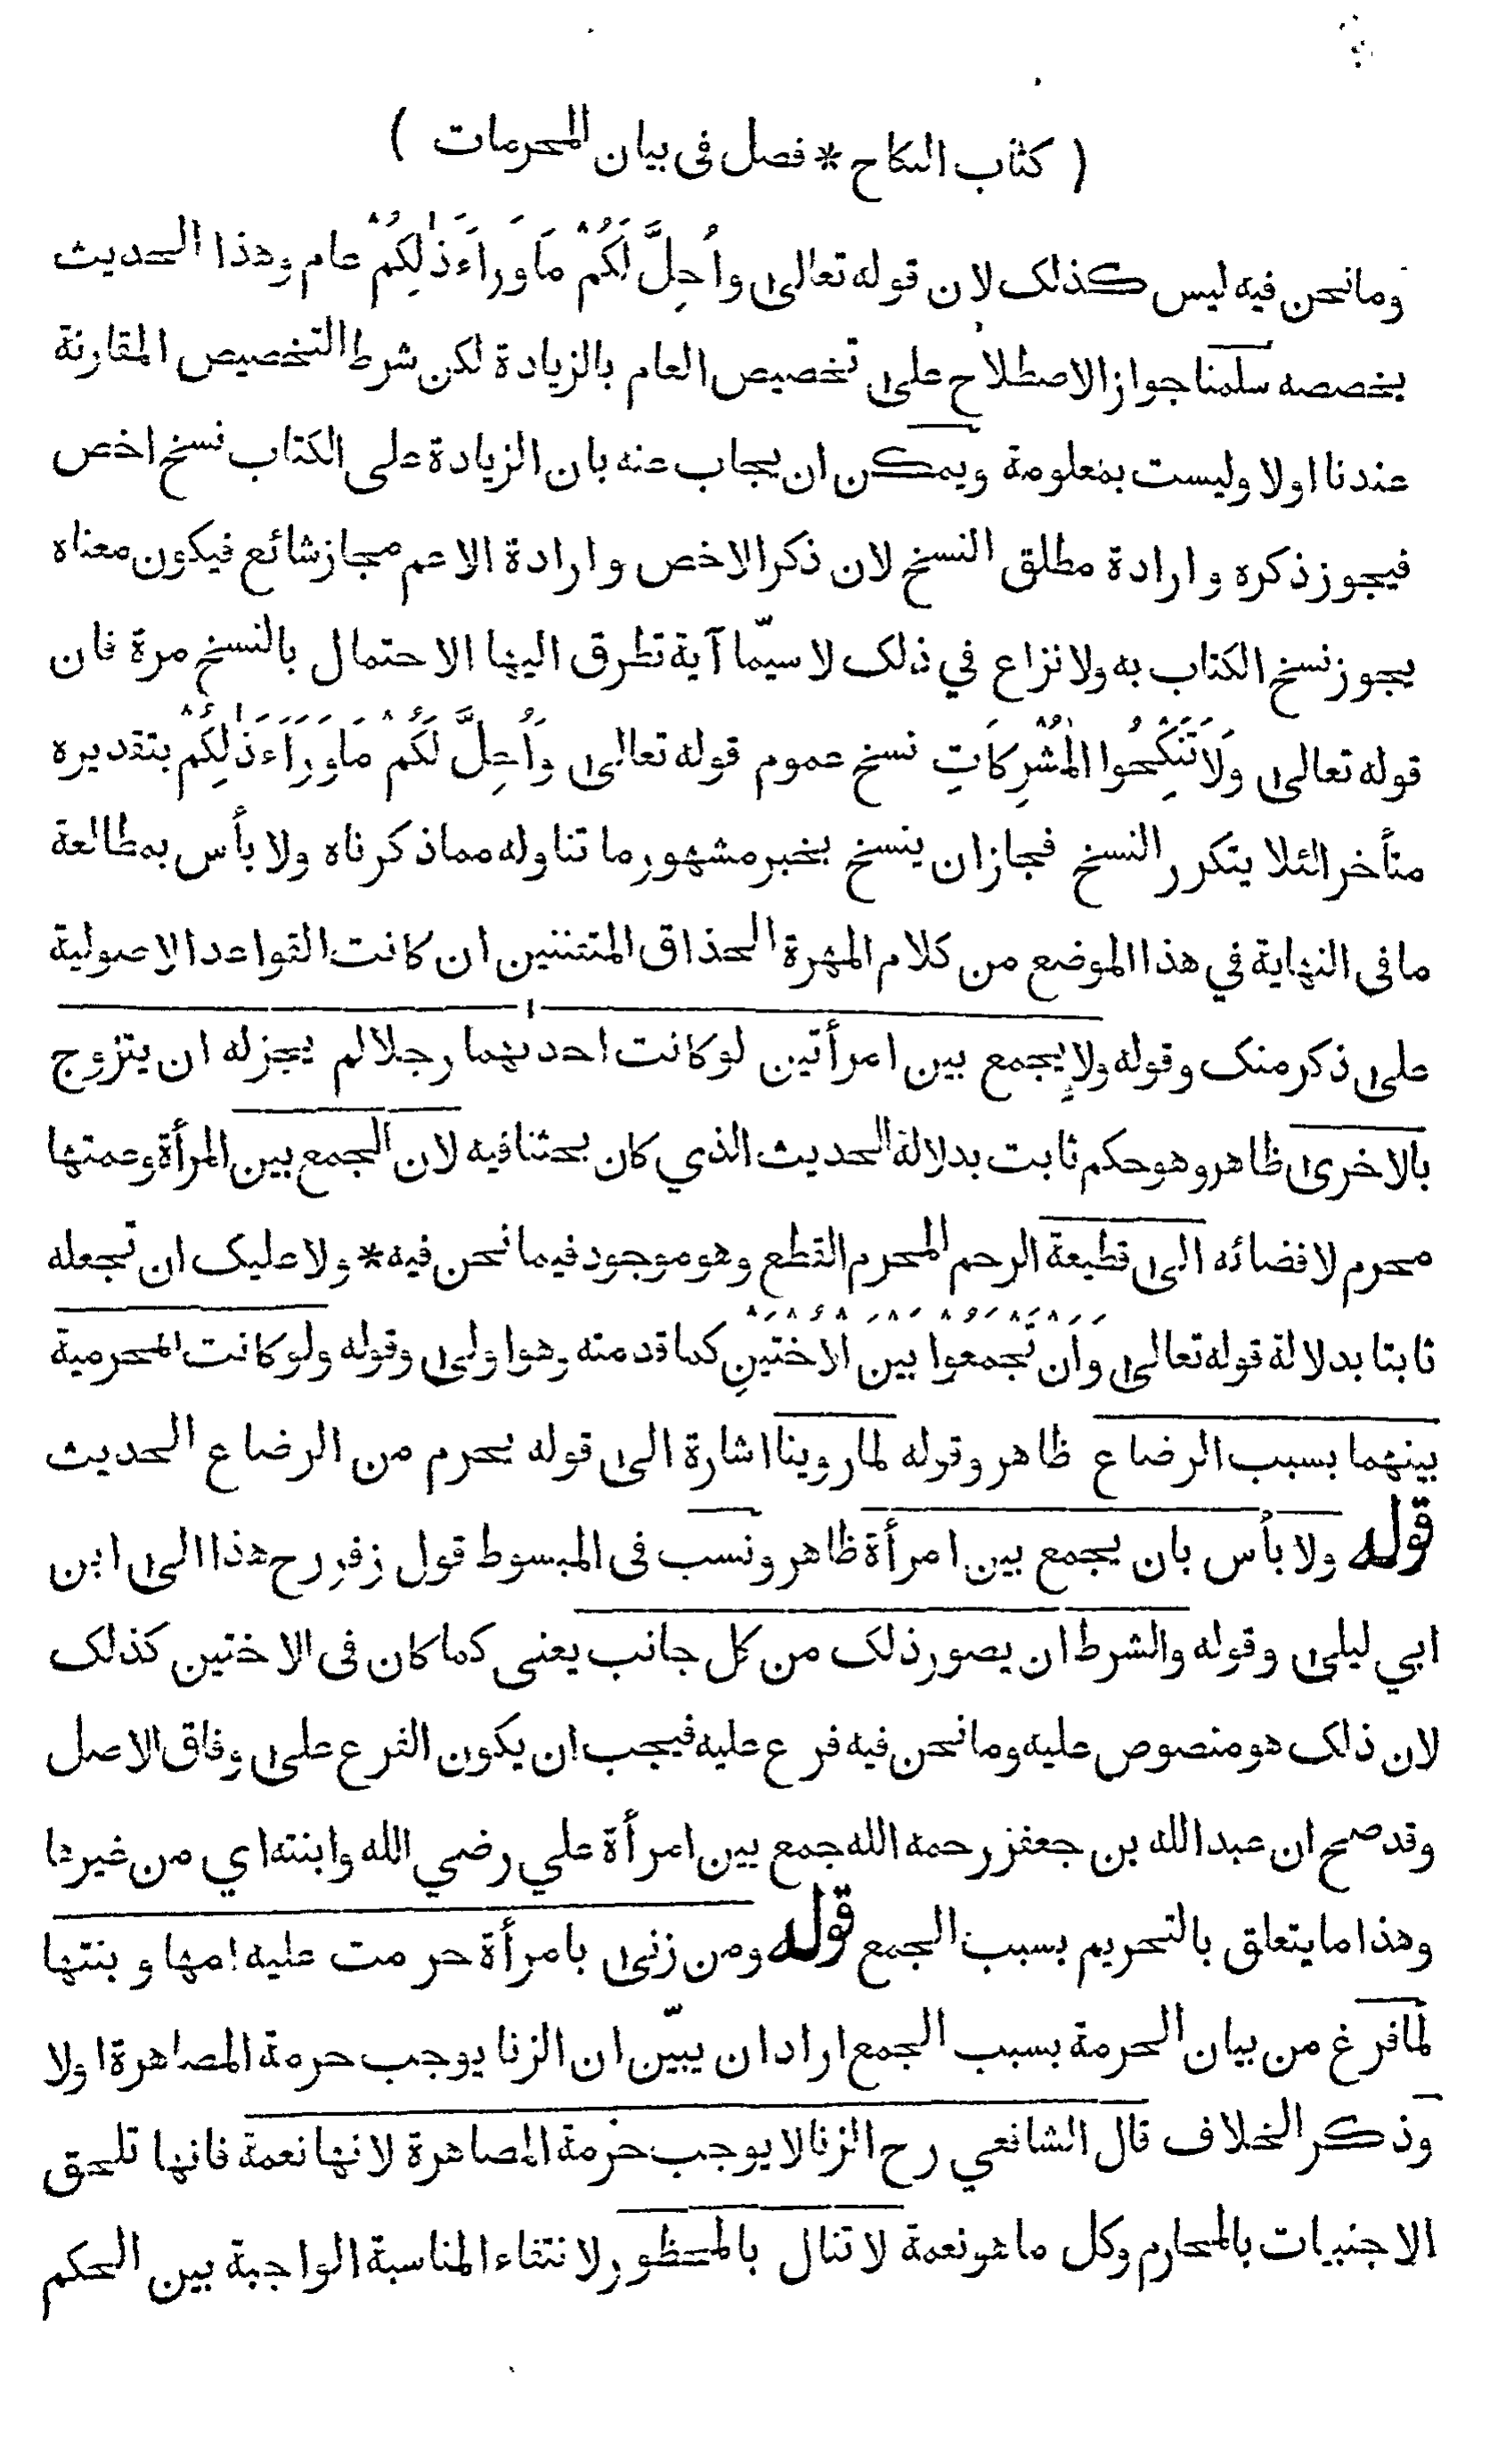 ( كتاب النكاح * فصل في بيان المحرمات )
وما نحن فيه ليس كذلك لان قوله تعالى وَاُحِلَّ لَكُمْ مَا وَرَاءَ ذٰلِكُمْ عام وهذا الحديث
يخصصه سلمنا جواز الاصطلاح على تخصيص العام بالزيادة لكن شرط التخصيص المقارنة
عندنا اولا وليست بمعلومة ويمكن ان يجاب عنه بان الزيادة على الكتاب نسخ اخص
فيجوز ذكره و ارادة مطلق النسخ لان ذكر الاخص و ارادة الاعم مجاز شائع فيكون معناه
يجوز نسخ الكتاب به ولا نزاع في ذلك لا سيّما آية تطرق اليها الاحتمال بالنسخ مرة فان
قوله تعالى وَلَا تَنْكِحُوا الْمُشْرِكَاتِ نسخ عموم قوله تعالى وَاُحِلَّ لَكُمْ مَا وَرَاءَ ذٰلِكُمْ بتقديره
متأخرا لئلا يتكرر النسخ فجاز ان ينسخ بخبر مشهور ما تناوله مما ذكرناه ولا بأس بمطالعة
ما في النهاية في هذا الموضع من كلام المهرة الحذاق المتقنين ان كانت القواعد الاصولية
على ذكر منك وقوله ولا يجمع بين امرأتين لو كانت احديهما رجلا لم يجز له ان يتزوج
بالاخرى ظاهر وهو حكم ثابت بدلالة الحديث الذي كان بحثنا فيه لان الجمع بين المرأة وعمتها
محرم لافضائه الى قطيعة الرحم المحرم القطع وهو موجود فيما نحن فيه * ولا عليك ان تجعله
ثابتا بدلالة قوله تعالى وَاَنْ تَجْمَعُوا بَيْنَ الْاُخْتَيْنِ كما قدمته وهو اولى وقوله ولو كانت المحرمية
بينهما بسبب الرضاع ظاهر وقوله لما روينا اشارة الى قوله يحرم من الرضاع الحديث
قوله ولا بأس بان يجمع بين امرأة ظاهر ونسب في المبسوط قول زفر رح هذا الى ابن
ابي ليلى وقوله والشرط ان يصور ذلك من كل جانب يعني كما كان في الاختين كذلك
لان ذلك هو منصوص عليه وما نحن فيه فرع عليه فيجب ان يكون الفرع على وفاق الاصل
وقد صح ان عبد الله بن جعفر رحمه الله جمع بين امرأة علي رضي الله وابنته اي من غيرها
وهذا ما يتعلق بالتحريم بسبب الجمع قوله ومن زنى بامرأة حرمت عليه امها و بنتها
لما فرغ من بيان الحرمة بسبب الجمع اراد ان يبيّن ان الزنا يوجب حرمة المصاهرة اولا
وذكر الخلاف قال الشافعي رح الزنا لا يوجب حرمة المصاهرة لانها نعمة فانها تلحق
الاجنبيات بالمحارم وكل ما هو نعمة لا تنال بالمحظور لانتفاء المناسبة الواجبة بين الحكم